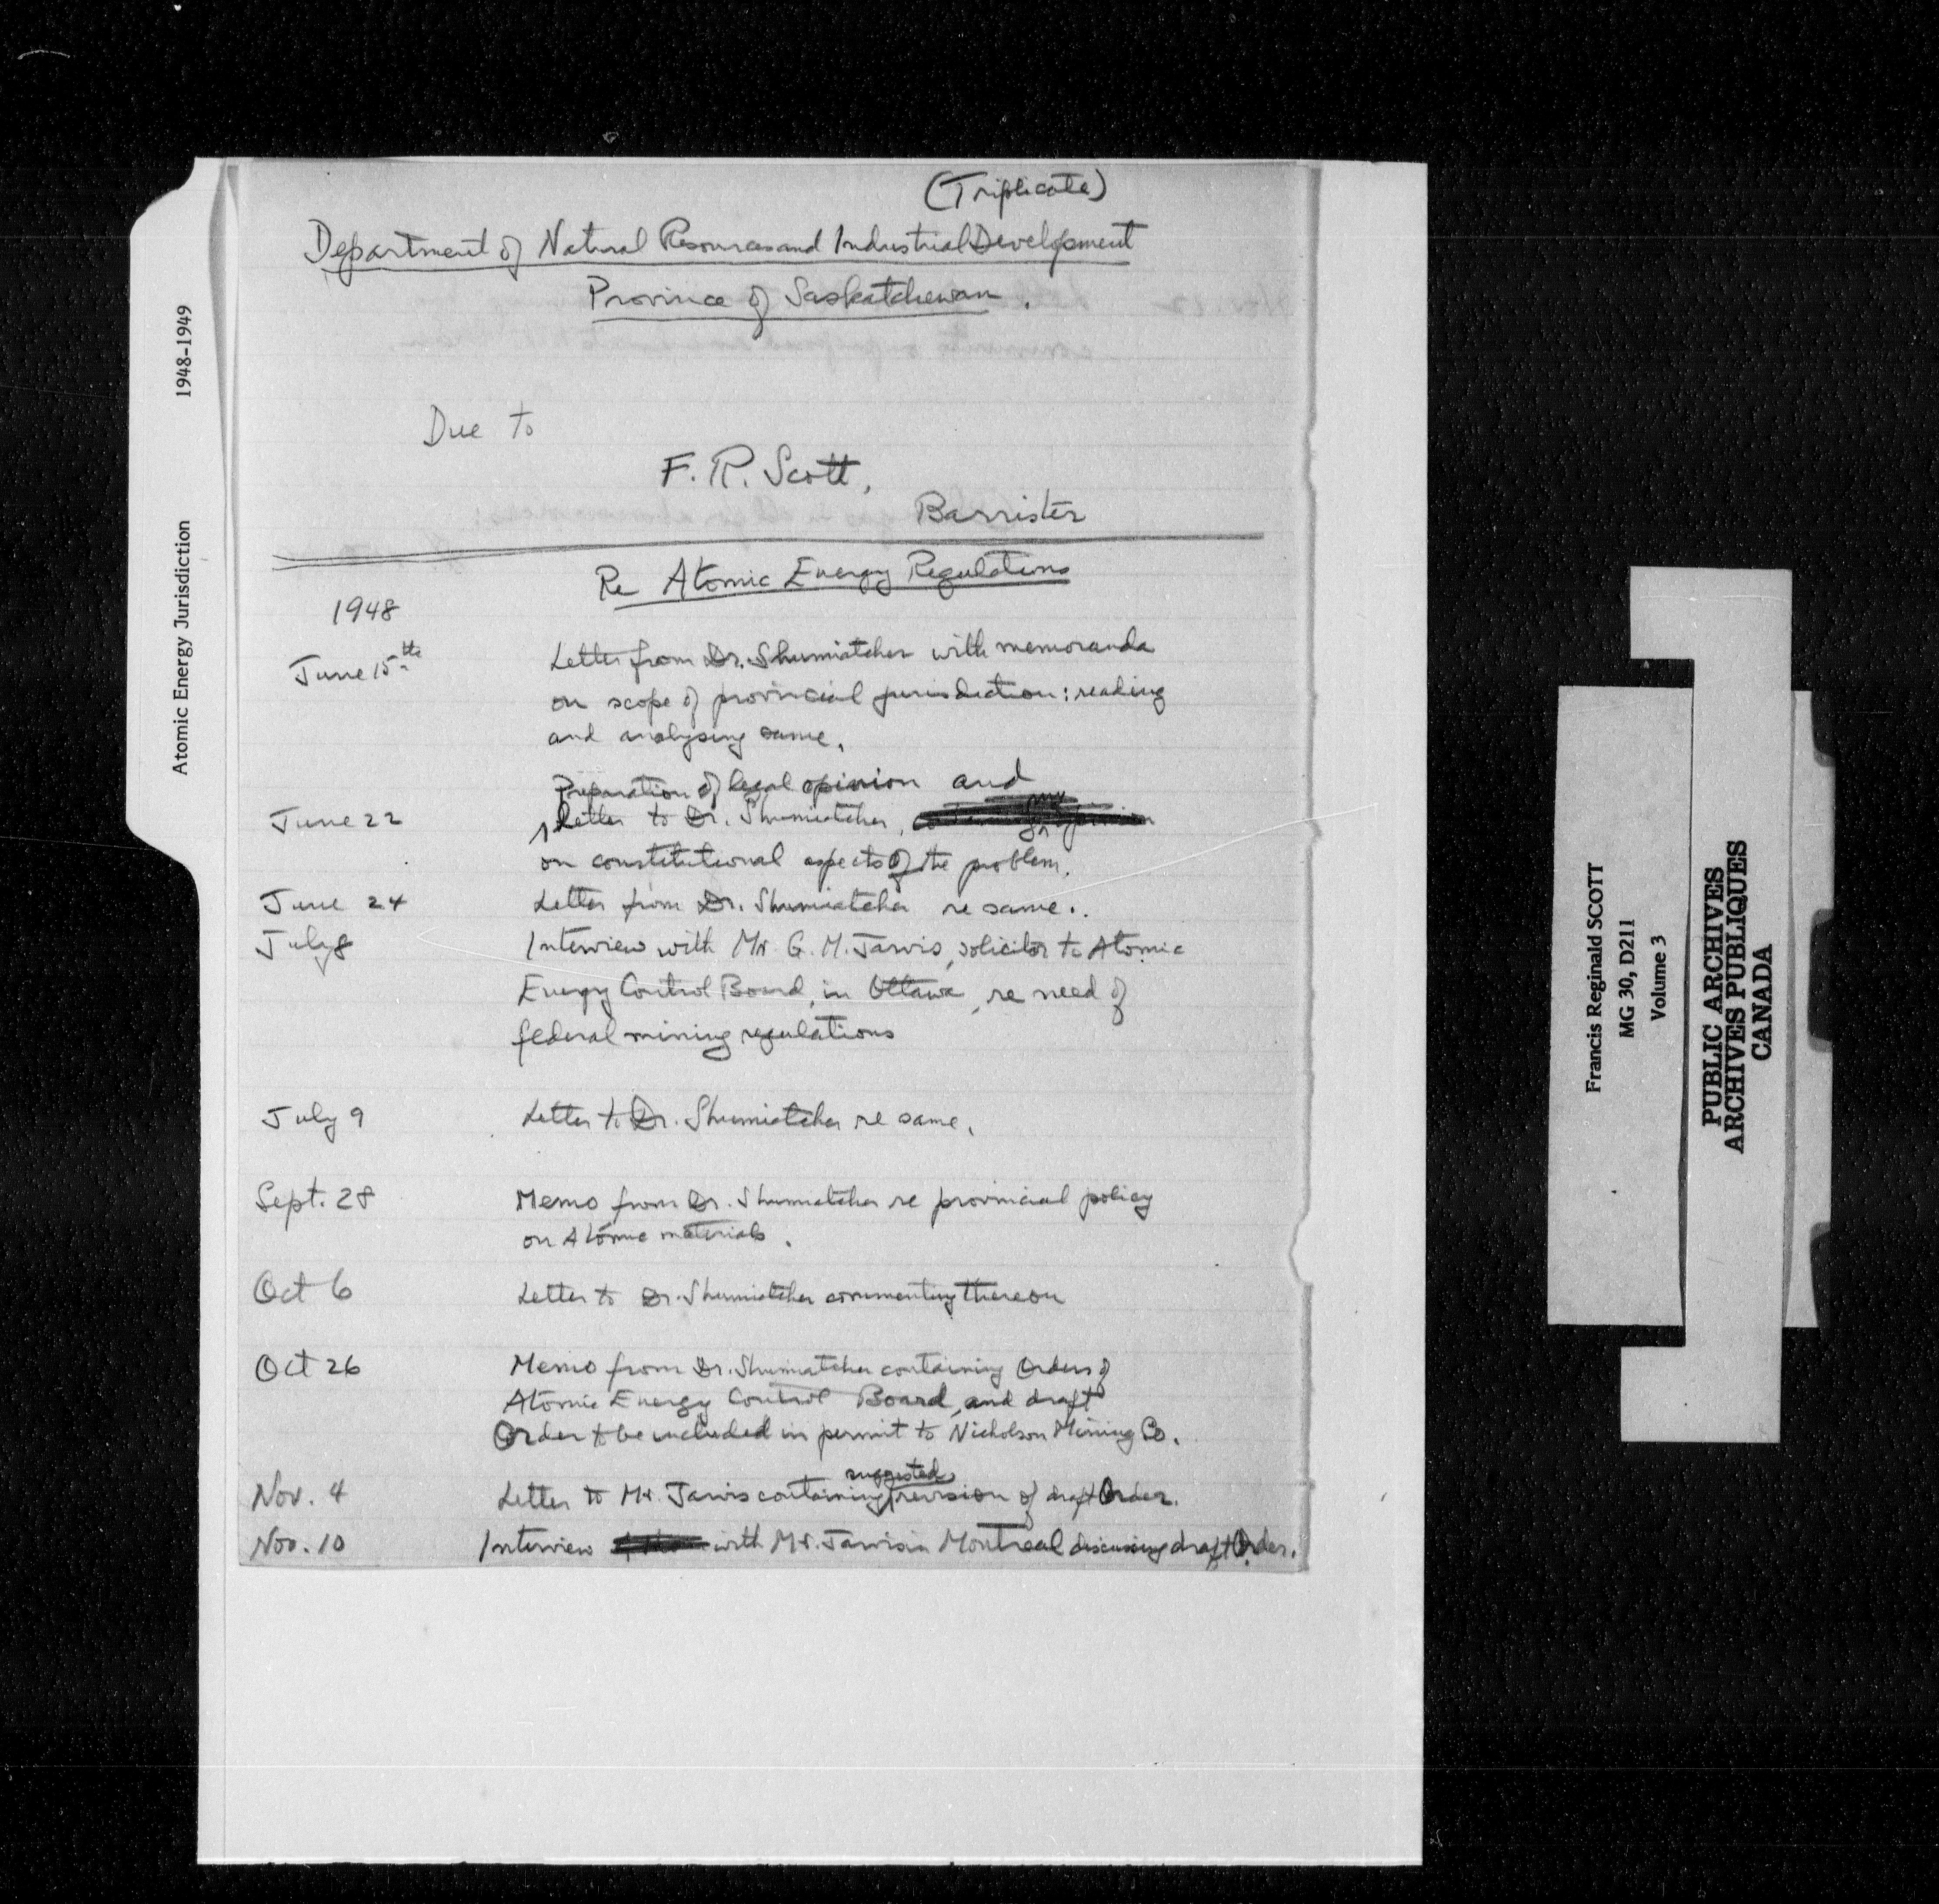 (Triplicate)
Department of Natural Resources and Industrial Development
Province of Saskatchewan.
Due to
F. R. Scott,
Barrister
Re Atomic Energy Regulations
1948
June 15th Letter from Dr. Shumiatcher with memoranda
on scope of provincial jurisdiction: reading
and analysing same.
Preparation of legal opinion and
June 22 letter to Dr. Shumiatcher, my opinion
on constitutional aspects of the problem.
June 24 Letter from Dr. Shumiatcher re same.
July 8 Interview with Mr. G. M. Jarvis, solicitor to Atomic
Energy Control Board, in Ottawa, re need of
federal mining regulations
July 9 Letter to Dr. Shumiatcher re same.
Sept. 28 Memo from Dr. Shumiatcher re provincial policy
on Atomic materials.
Oct 6 Letter to Dr. Shumiatcher commenting thereon
Oct 26 Memo from Dr. Shumiatcher containing Orders of
Atomic Energy Control Board, and draft
Order to be included in permit to Nicholson Mining Co.
suggested
Nov. 4 Letter to Mr. Jarvis containing revision of draft Order.
Nov. 10 Interview with Mr. Jarvis in Montreal discussing draft Order.
Atomic Energy Jurisdiction 1948-1949
Francis Reginald SCOTT
MG 30, D211
Volume 3
PUBLIC ARCHIVES
ARCHIVES PUBLIQUES
CANADA